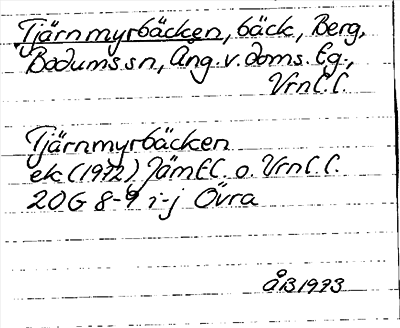 Tjärnmyrbäcken, bäck, Berg,
Bodums sn, Ång. v. doms. Lg.,
Vrnl. l.
Tjärnmyrbäcken
ek (1972) Jämtl. o. Vrnl. l.
20G 8-9 i-j Övra
ÅB 1973